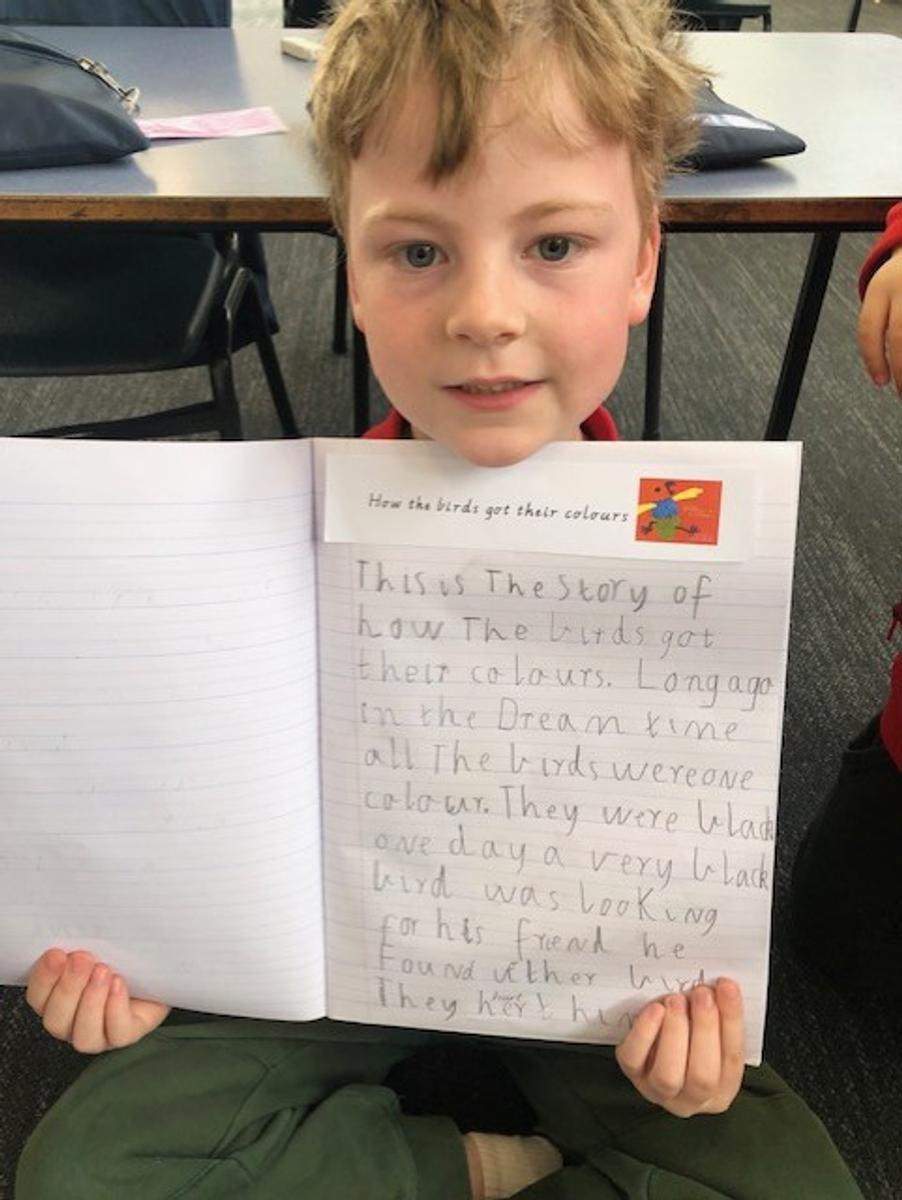 How the birds got their colours
This is The Story of
how The birds got
their colours. Long ago
in the Dream time
all The birds were one
colour. They were black
one day a very black
bird was looking
for his friend he
Found uther bird
They hert hurt him